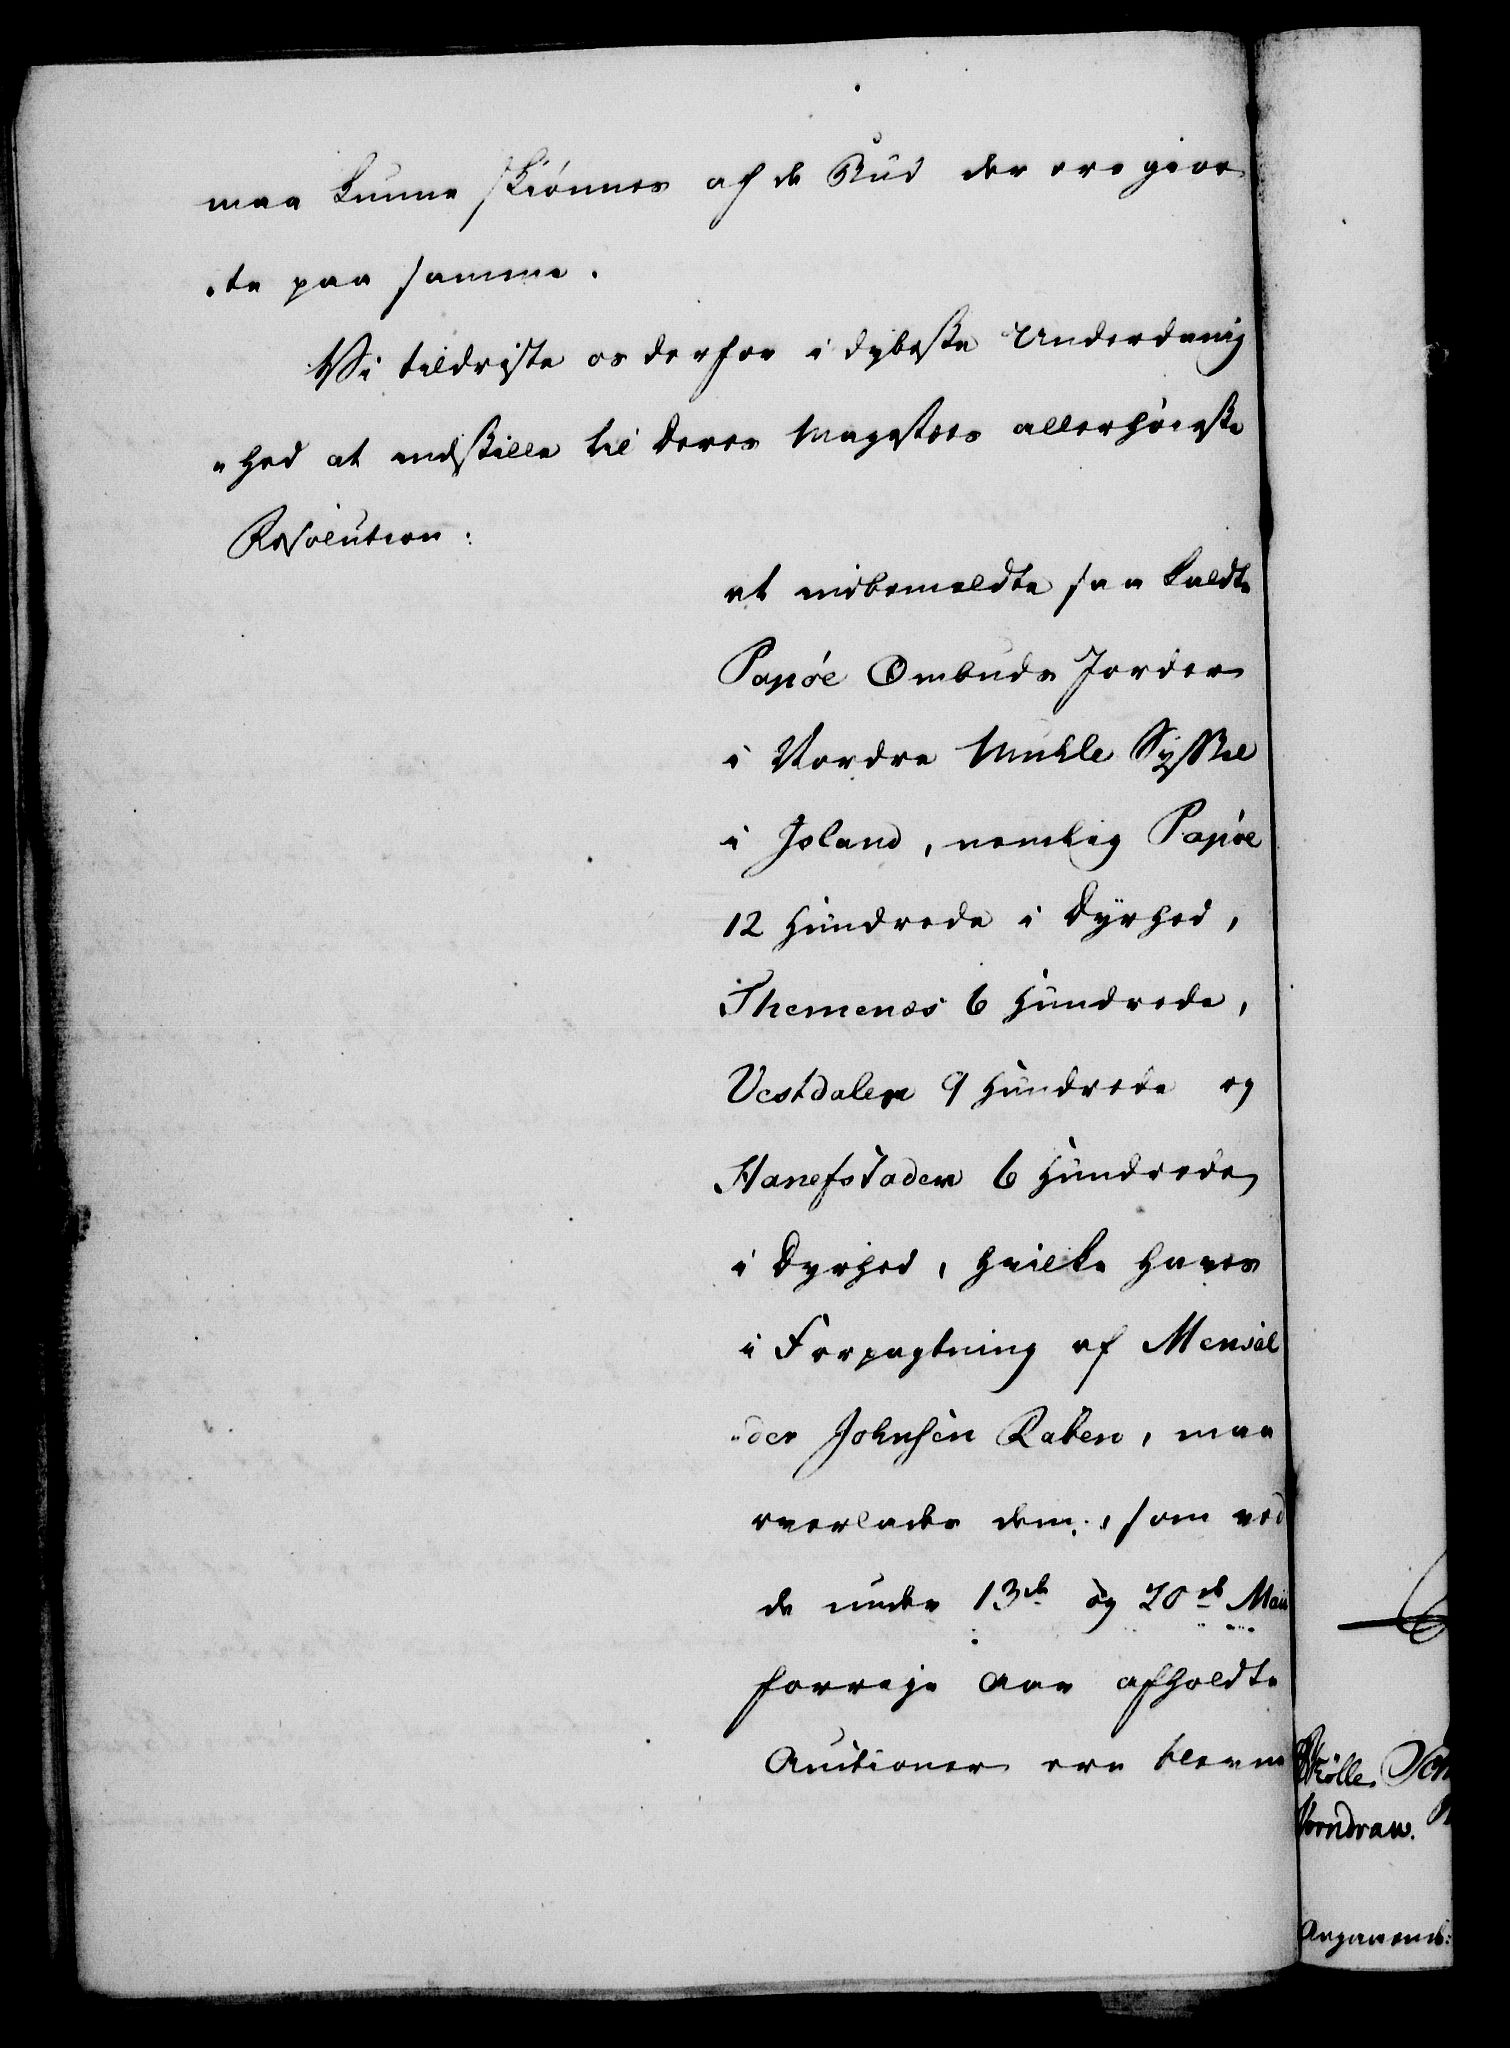 maa kunne skiönnes af de Bud der ere gior
-te paa samme.
Vi tildriste os derfor i dybeste Underdanig
-hed at indstille til Deres Majestæts allerhöieste
Resolution:
at indbemeldte saa kaldte
Papöe Ombuds Jorder
i Nordre Muhle Syssel
i Island, nemlig Papöe
12 Hundrede i Dyrhed,
Themenæs 6 Hundrede,
Vestdalen 9 Hundrede og
Hanefstaden 6 Hundrede
i Dyrhed, hvilke haves
i Forpagtning af Mensal
-der Johnsen Raben, maa
overlades dem, som ved
de under 13de og 20de Maii
forrige Aar afholdte
Auctioner ere blevne
Skölle.
Wormdrau.